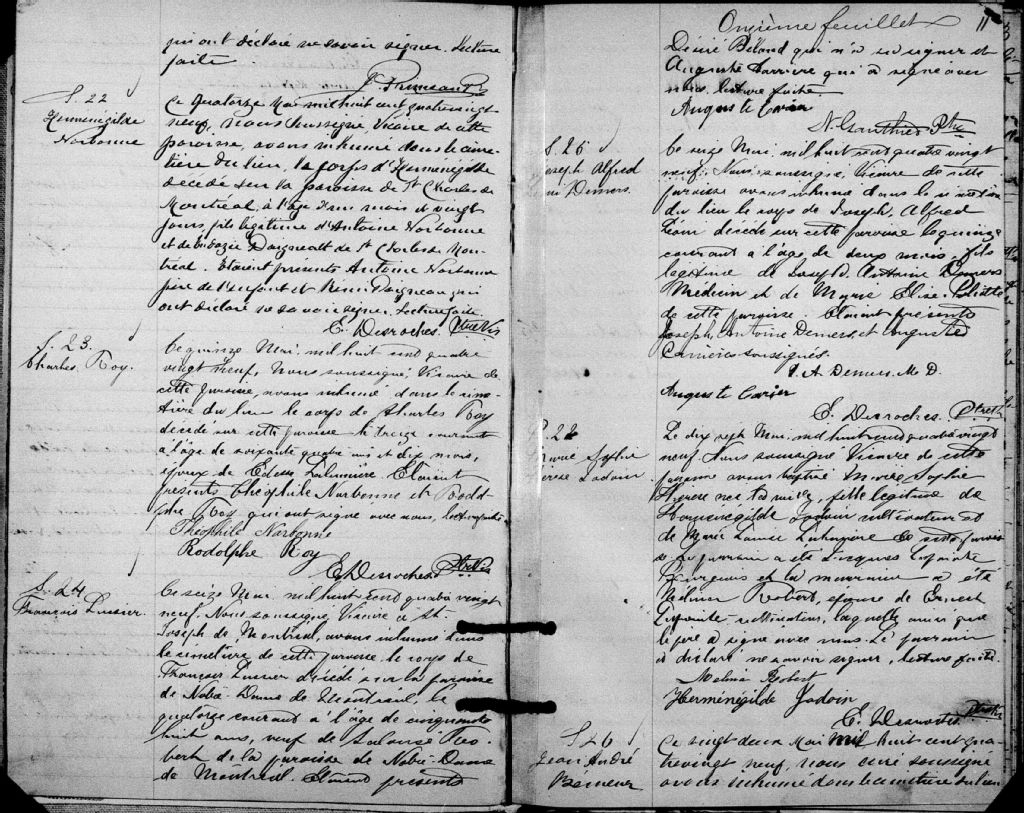 qui ont déclaré ne savoir signer. Lecture
faite.
Ptre
S. 22
Herménégilde
Narbonne
Ce quatorze Mai mil huit cent quatre vingt
neuf, nous soussigné, Vicaire de cette
paroisse, avons inhumé dans le cime-
tière du lieu, le corps d'Herménégilde
décédé sur la paroisse de St Charles de
Montréal, à l'âge d'un mois et vingt
jours, fils légitime d'Antoine Narbonne
et de Daigneault de St Charles de Mon-
treal. Etaient présents Antoine Narbonne
père de l'enfant et Daigneau qui
ont déclaré ne savoir signer. Lecture faite.
E. Desroches. Ptre Vic
S. 23.
Charles Roy.
Ce quinze Mai, mil huit cent quatre
vingt neuf, Nous soussigné Vicaire de
cette paroisse, avons inhumé dans le cime-
tière du lieu le corps de Charles Roy
décédé sur cette paroisse le treize courant
à l'âge de soixante quatre ans et dix mois,
époux de Lalumière. Etaient
présents Théophile Narbonne et Rodol-
phe Roy qui ont signé avec nous, lecture faite.
Théophile Narbonne
Rodolphe Roy
E. Desroches. Ptre Vic
S. 24
François Lussier.
Ce seize Mai, mil huit cent quatre vingt
neuf, Nous soussigné Vicaire à St.
Joseph de Montréal, avons inhumé dans
le cimetière de cette paroisse, le corps de
François Lussier décédé sur la paroisse
de Notre-Dame de Montréal, le
quatorze courant à l'âge de cinquante
huit ans, veuf de Ro-
bert de la paroisse de Notre-Dame
de Montréal. Etaient présents
Onzième feuillet 11
Désiré Béland qui n'a su signer et
Auguste Carrière qui a signé avec
nous. Lecture faite.
Auguste Carier
N. Gauthier Ptre
S. 25
Joseph Alfred
Demers.
Ce seize Mai, mil huit cent quatre vingt
neuf, Nous, soussigné, Vicaire de cette
paroisse avons inhumé dans le cimetière
du lieu le corps de Joseph, Alfred
décédé sur cette paroisse le quinze
courant à l'âge de deux mois, fils
légitime de Joseph Antoine Demers
Médecin et de Marie Elise
de cette paroisse. Etaient présents
Joseph, Antoine Demers, et Auguste
Carrière soussignés.
J. A. Demers, M. D.
Auguste Carier
E. Desroches. Ptre
Marie Sophie
Jodoin.
Le dix sept Mai, mil huit cent quatre vingt
neuf Nous soussigné Vicaire de cette
paroisse avons baptisé Marie Sophie
née fille légitime de
Herménégilde Jodoin cultivateur et
de Marie Louise de cette paroisse
se. Le parrain a été Jacques Lapointe
Bourgeois et la marraine a été
Melina Robert, épouse de Ernest
Lapointe cultivateur, laquelle ainsi que
le père a signé avec nous. Le parrain
a déclaré ne savoir signer, lecture faite.
Melina Robert
Herménégilde Jodoin
E. Desroches Ptre
S. 26
Jean André
Ce vingt deux Mai mil huit cent qua-
trevingt neuf, nous curé soussigné
avons inhumé dans le cimetière du lieu